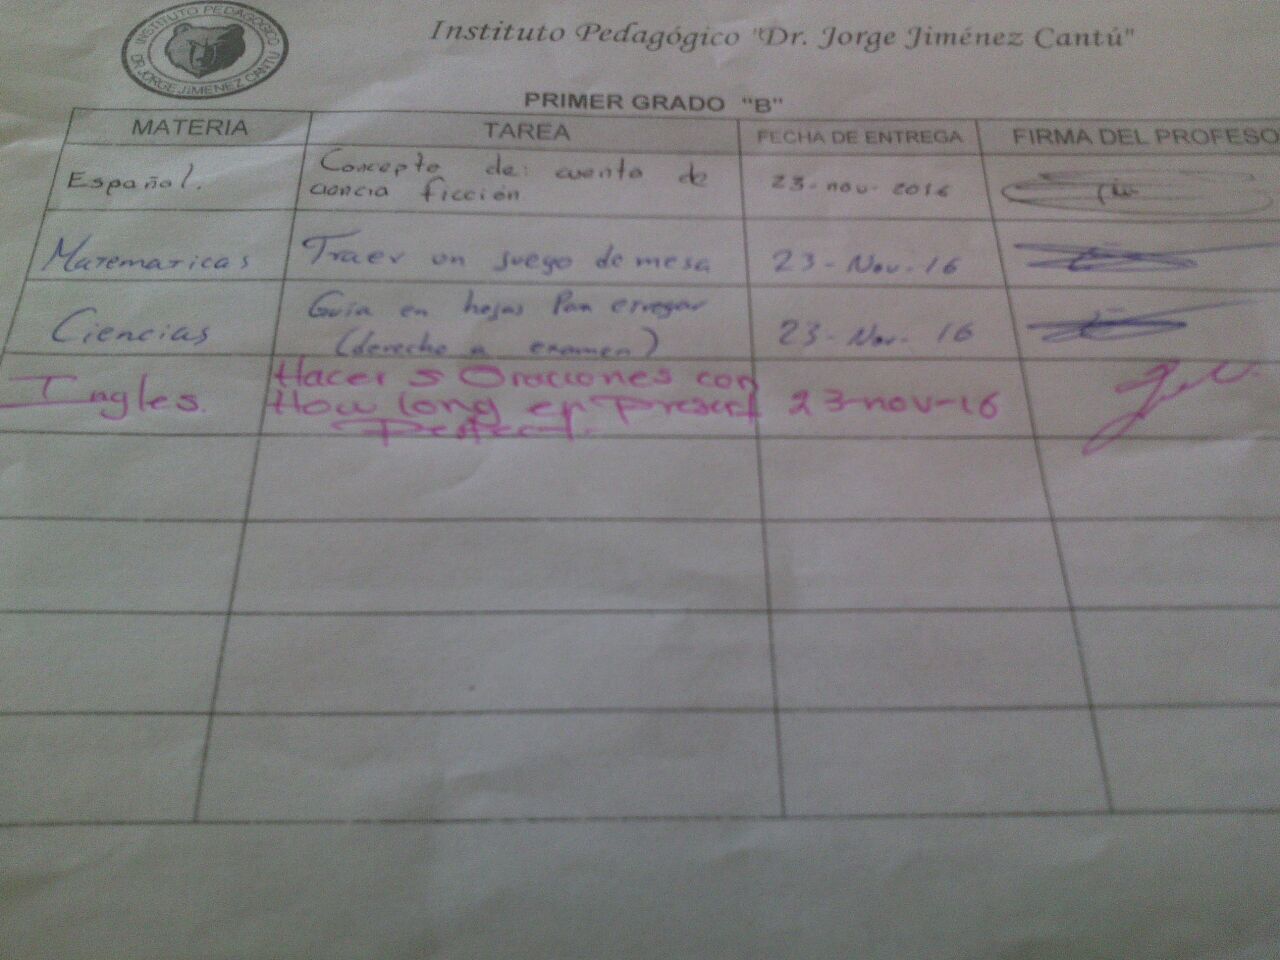 INSTITUTO PEDAGOGICO
DR. JORGE JIMENEZ CANTU
Instituto Pedagógico "Dr. Jorge Jiménez Cantú"
PRIMER GRADO "B"
MATERIA TAREA FECHA DE ENTREGA FIRMA DEL PROFESO
Español. Concepto de: cuento de 23-nov-2016
ciencia ficción
Matematicas Traer un juego de mesa 23-Nov-16
Ciencias Guia en hojas Para
(derecho a examen) 23-Nov-16
Ingles. Hacer 5 Oraciones con
How long en Present 23-nov-16
Perfect.